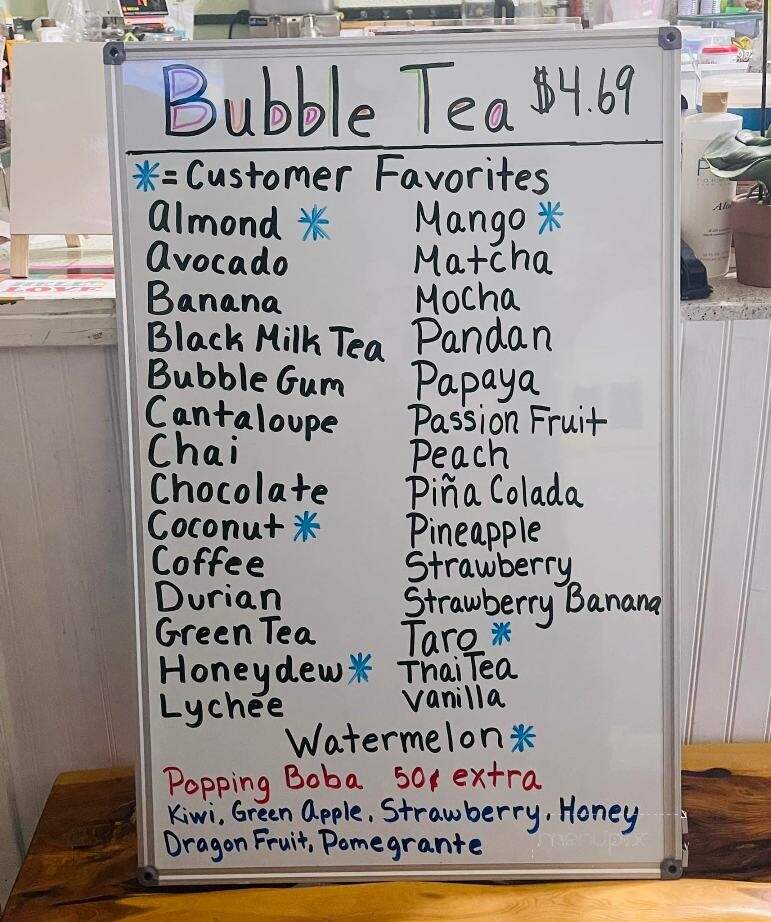 Bubble Tea $4.69
* = Customer Favorites
Almond *
Avocado
Banana
Black Milk Tea
Bubble Gum
Cantaloupe
Chai
Chocolate
Coconut *
Coffee
Durian
Green Tea
Honeydew *
Lychee
Mango *
Matcha
Mocha
Pandan
Papaya
Passion Fruit
Peach
Piña Colada
Pineapple
Strawberry
Strawberry Banana
Taro *
Thai Tea
Vanilla
Watermelon *
Popping Boba 50¢ extra
Kiwi, Green Apple, Strawberry, Honey
Dragon Fruit, Pomegrante
menupix